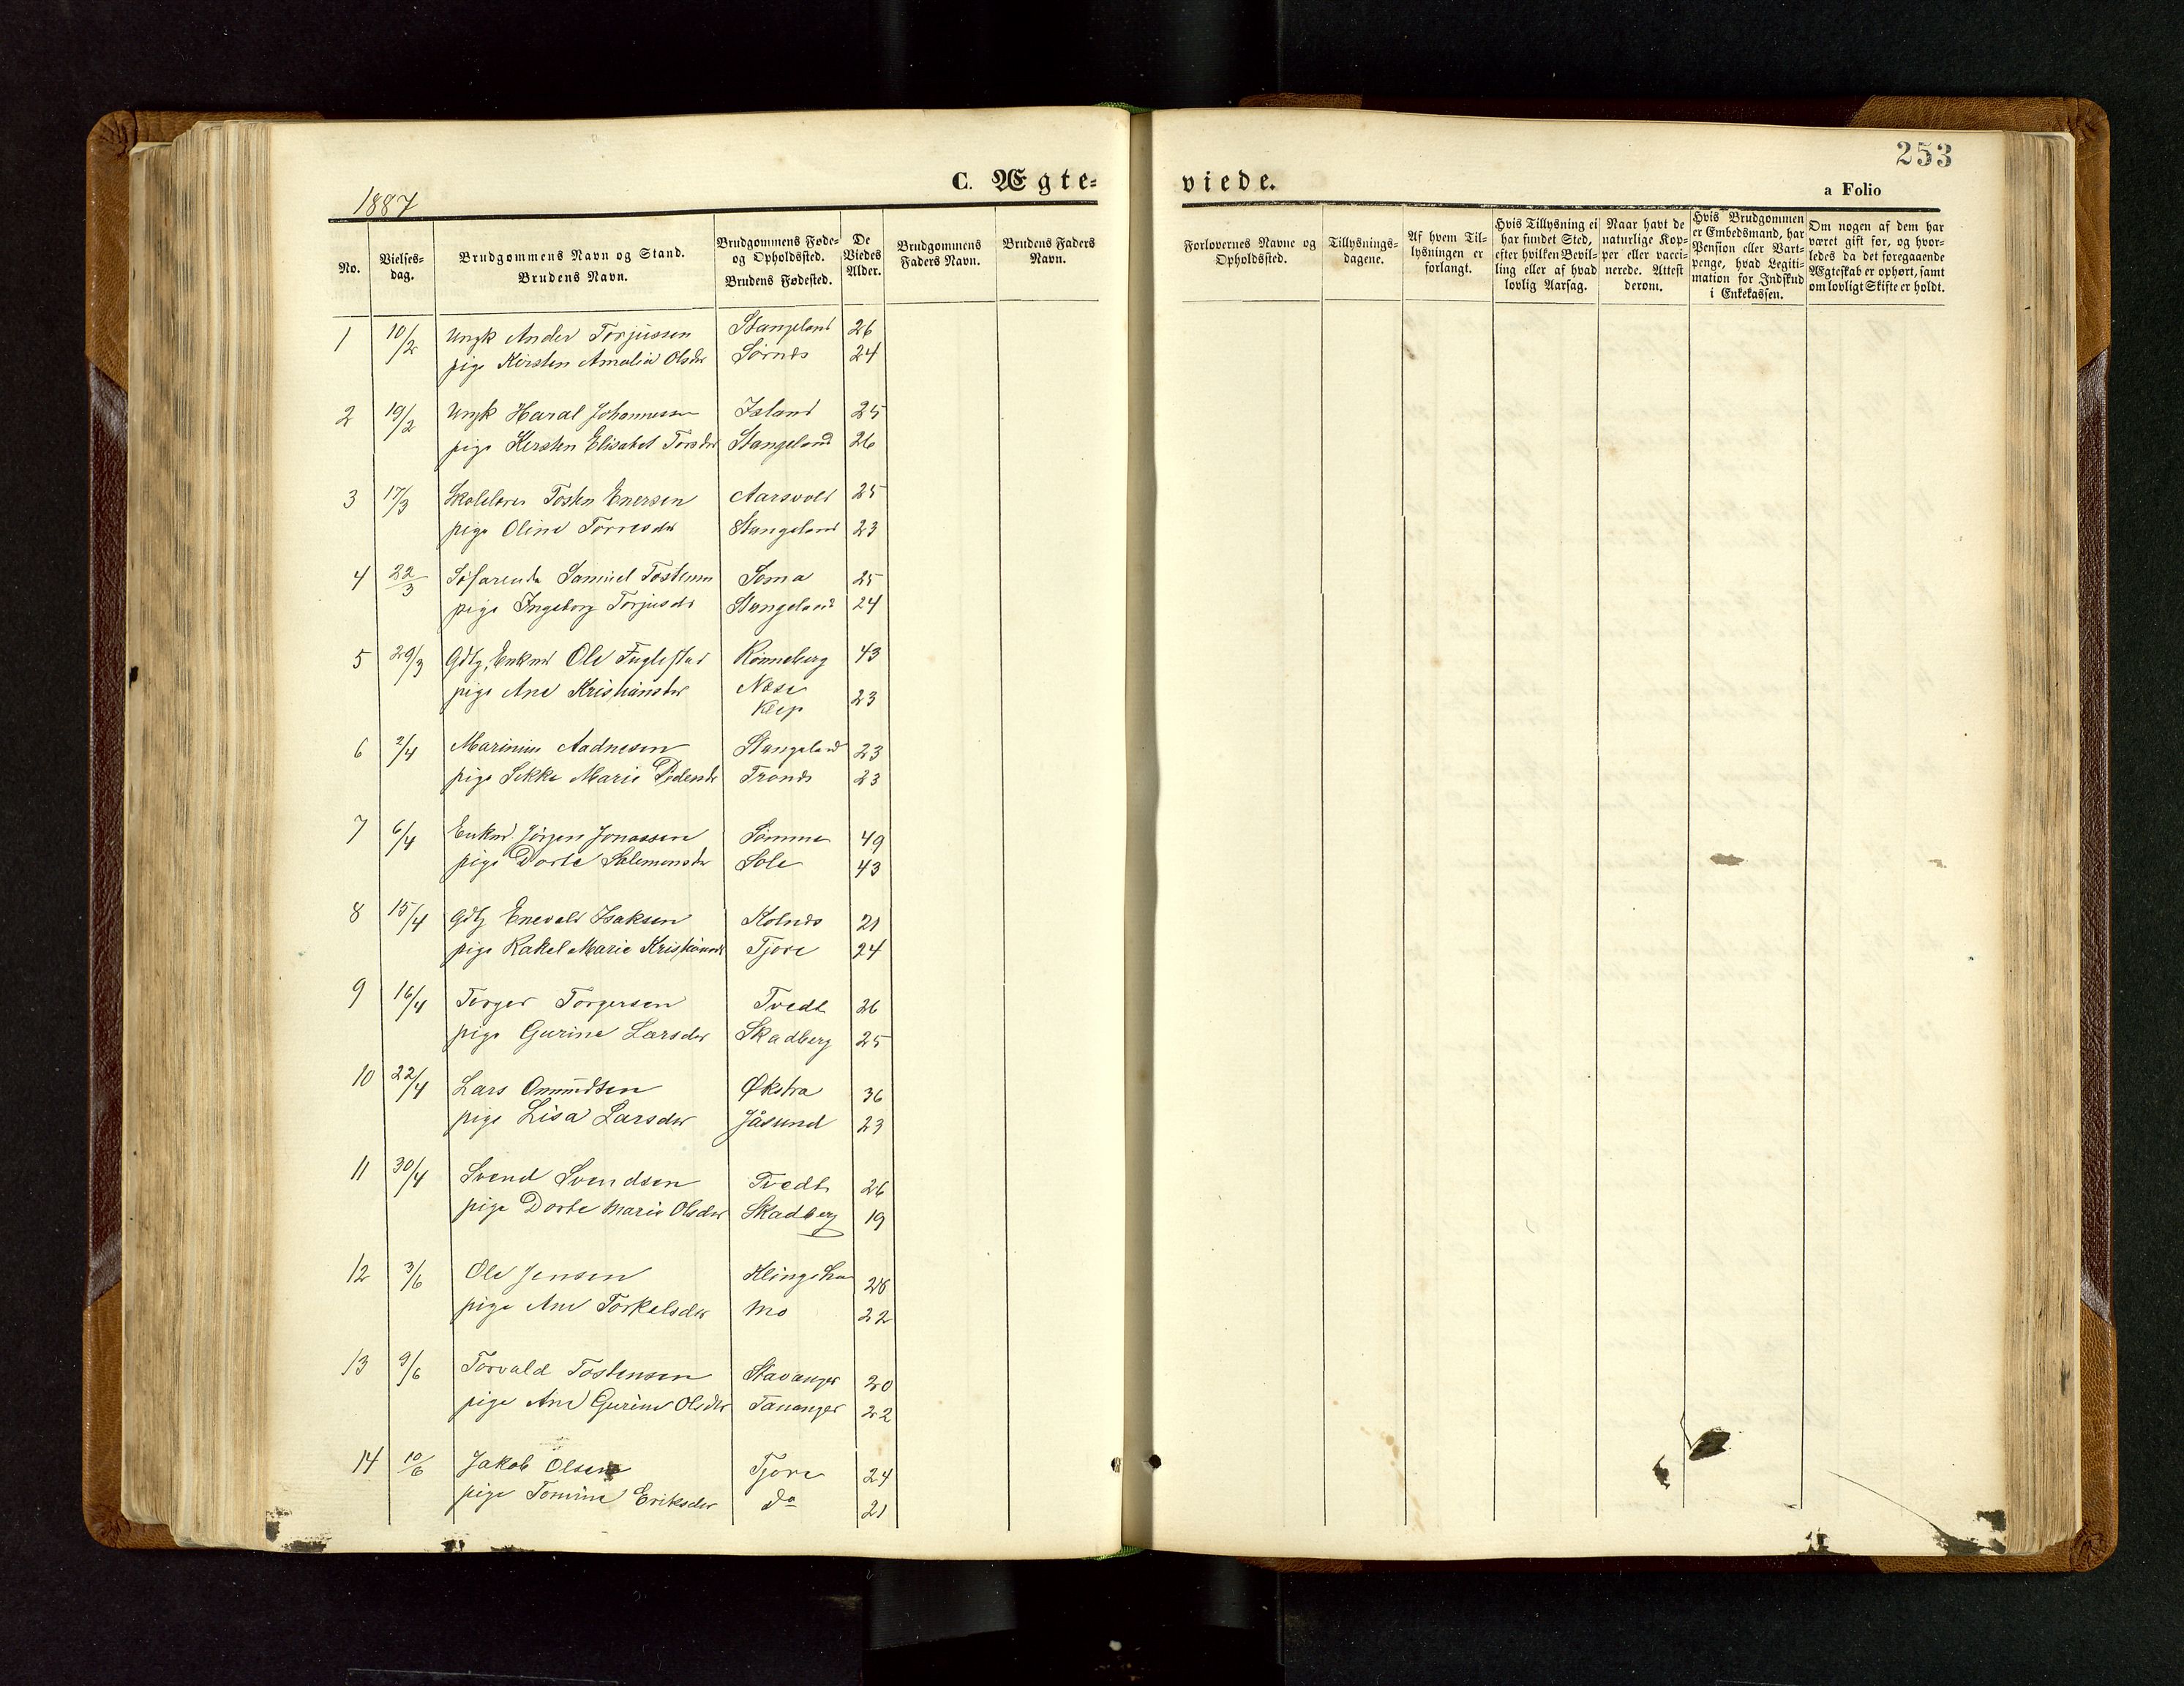 253
1887
C. Ægte=
viede.
a Folio
No.
Vielses=
dag.
Brudgommens Navn og Stand.
Brudens Navn.
Brudgommens Føde=
og Opholdssted.
Brudens Fødested.
De
Viedes
Alder.
Brudgommens
Faders Navn.
Brudens Faders
Navn.
Forlovernes Navne og
Opholdssted.
Tillysnings=
dagene.
Af hvem Til=
lysningen er
forlangt.
Hvis Tillysning ei
har fundet Sted,
efter hvilken Bevil=
ling eller af hvad
lovlig Aarsag.
Naar havt de
naturlige Kop=
per eller vacci=
nerede. Attest
derom.
Hvis Brudgommen
er Embedsmand, har
Pension eller Vart=
penge, hvad Legiti=
mation for Indskud
i Enkekassen.
Om nogen af dem har
været gift før, og hvor=
ledes da det foregaaende
Ægteskab er ophørt, samt
om lovligt Skifte er holdt.
1 10/2 Ungk Ander Torjussen Stangeland 26
pige Kirsten Amalia Olsdr Sørnes 24
2 19/2 Ungk Haral Johannessen Island 25
pige Kirsten Elisabet Torsdr Stangeland 26
3 17/3 Skolelærer Tosten Enersen Aarsvold 25
pige Oline Torresdr Stangeland 23
4 22/3 Søfarende Samuel Tostensen Soma 25
pige Ingeborg Torjusdr Stangeland 24
5 29/3 Gdbg, Enkmd Ole Fuglestad Rønneberg 43
pige Ane Kristiansdr Næse 23
Klep
6 2/4 Marinius Aadnesen Stangeland 23
pige Sikke Marie Pedersdr Tronds 23
7 6/4 Enkmd. Jörgen Jonassen Sømme 49
pige Dorte Salemonsdr Sole 43
8 15/4 Gdbg Enevald Isaksen Kolnes 21
pige Rakel Marie Kristiansdr Tjore 24
9 16/4 Torger Torgersen Tvedt 26
pige Gurine Larsdr Skadberg 25
10 22/4 Lars Ommundsen Økstra 36
pige Lisa Larsdr Jåsund 23
11 30/4 Svend Svendsen Tvedt 26
pige Dorte Marie Olsdr Skadberg 19
12 3/6 Ole Jensen 28
pige Ane Torkelsdr Mo 22
13 9/6 Torvald Tostensen Stavanger 20
pige Ane Gurine Olsdr Tananger 22
14 10/6 Jakob Olsen Tjore 24
pige Tomine Eriksdr do 21